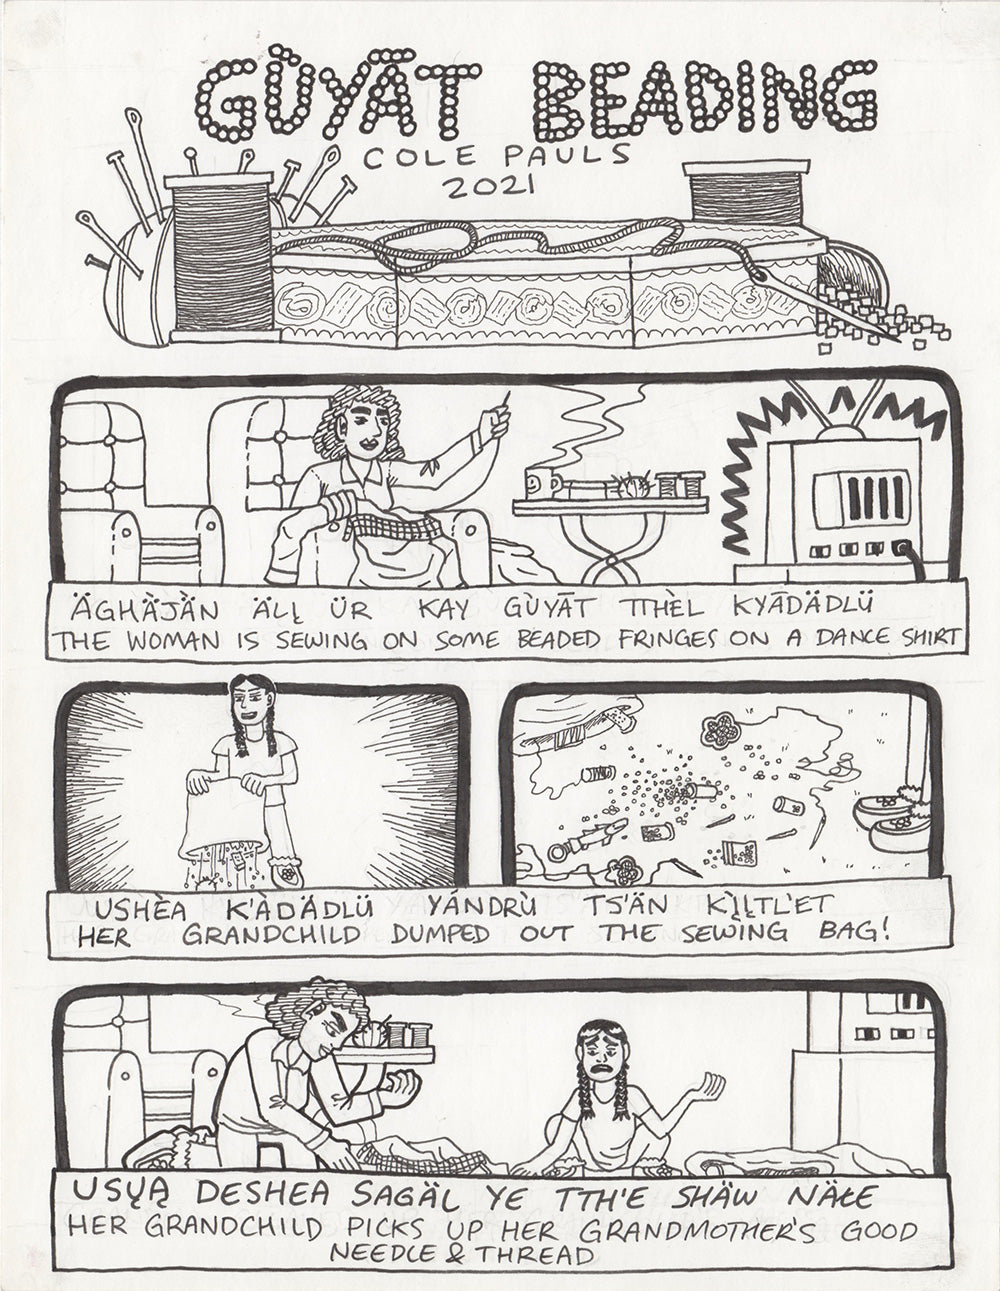 GÙYĀT BEADING
COLE PAULS
2021
ÄGHÀJÄ̀N ÄŁĮ ÜR KAY GÙYĀT TTHÈL KYĀDÄDLÜ
THE WOMAN IS SEWING ON SOME BEADED FRINGES ON A DANCE SHIRT
USHÈA K'ÀDÄDLÜ YÁNDRÙ TS'ÄN KĮ̀ĮTL'ET
HER GRANDCHILD DUMPED OUT THE SEWING BAG!
USŲĄ DESHEA SAGÄL YE TTH'E SHÄW NÄŁE
HER GRANDCHILD PICKS UP HER GRANDMOTHER'S GOOD
NEEDLE & THREAD